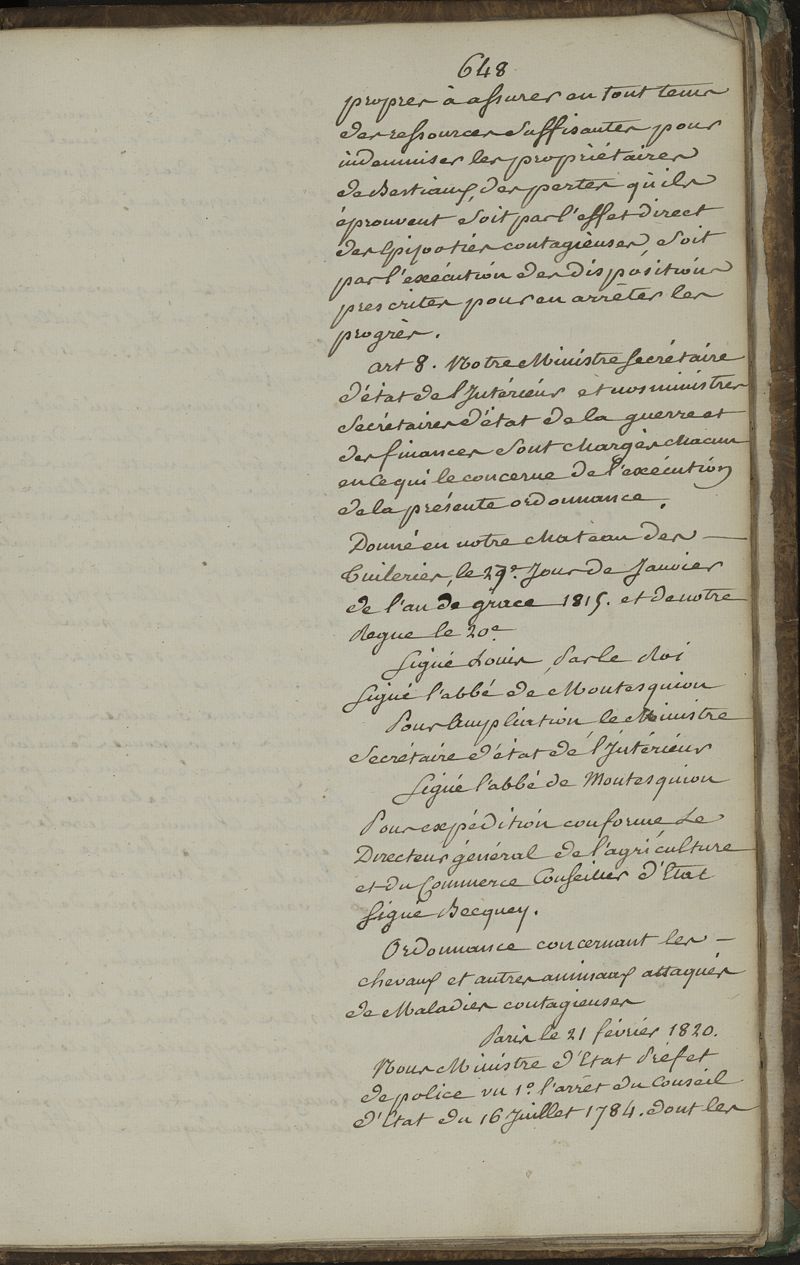 648
propres à assurer en tout tems
des ressources suffisantes pour
indemniser les propriétaires
de Bestiaux, des pertes qu'ils
éprouvent soit par l'effet direct
des Epizooties contagieuses, soit
par l'exécution des dispositions
prescrites pour en arrêter les
progrès.
art 8. Notre Ministre secrétaire
d'état de l'Intérieur et nos ministres
secrétaires d'état de la guerre et
des finances sont chargés chacun
en ce qui le concerne de l'exécution
de la présente ordonnance.
Donné en notre chateau des —
Tuileries, le 29e. Jour de Janvier
de l'an de grâce 1815. et de notre
Regne le 20e
signé Louis, Par le Roi
signé l'abbé de Montesquiou
Pour Ampliation le Ministre
secrétaire d'état de l'Intérieur
signé l'abbé de Montesquiou
Pour expédition conforme Le
Directeur général de l'agriculture
et du Commerce Conseiller d'Etat
signé Becquey.
Ordonnance concernant les —
chevaux et autres animaux attaqués
de Maladies contagieuses
Paris le 21 février 1820.
Nous Ministre d'Etat Préfet
de police vu 1o. l'arrêt du Conseil
d'Etat du 16 Juillet 1784. dont les